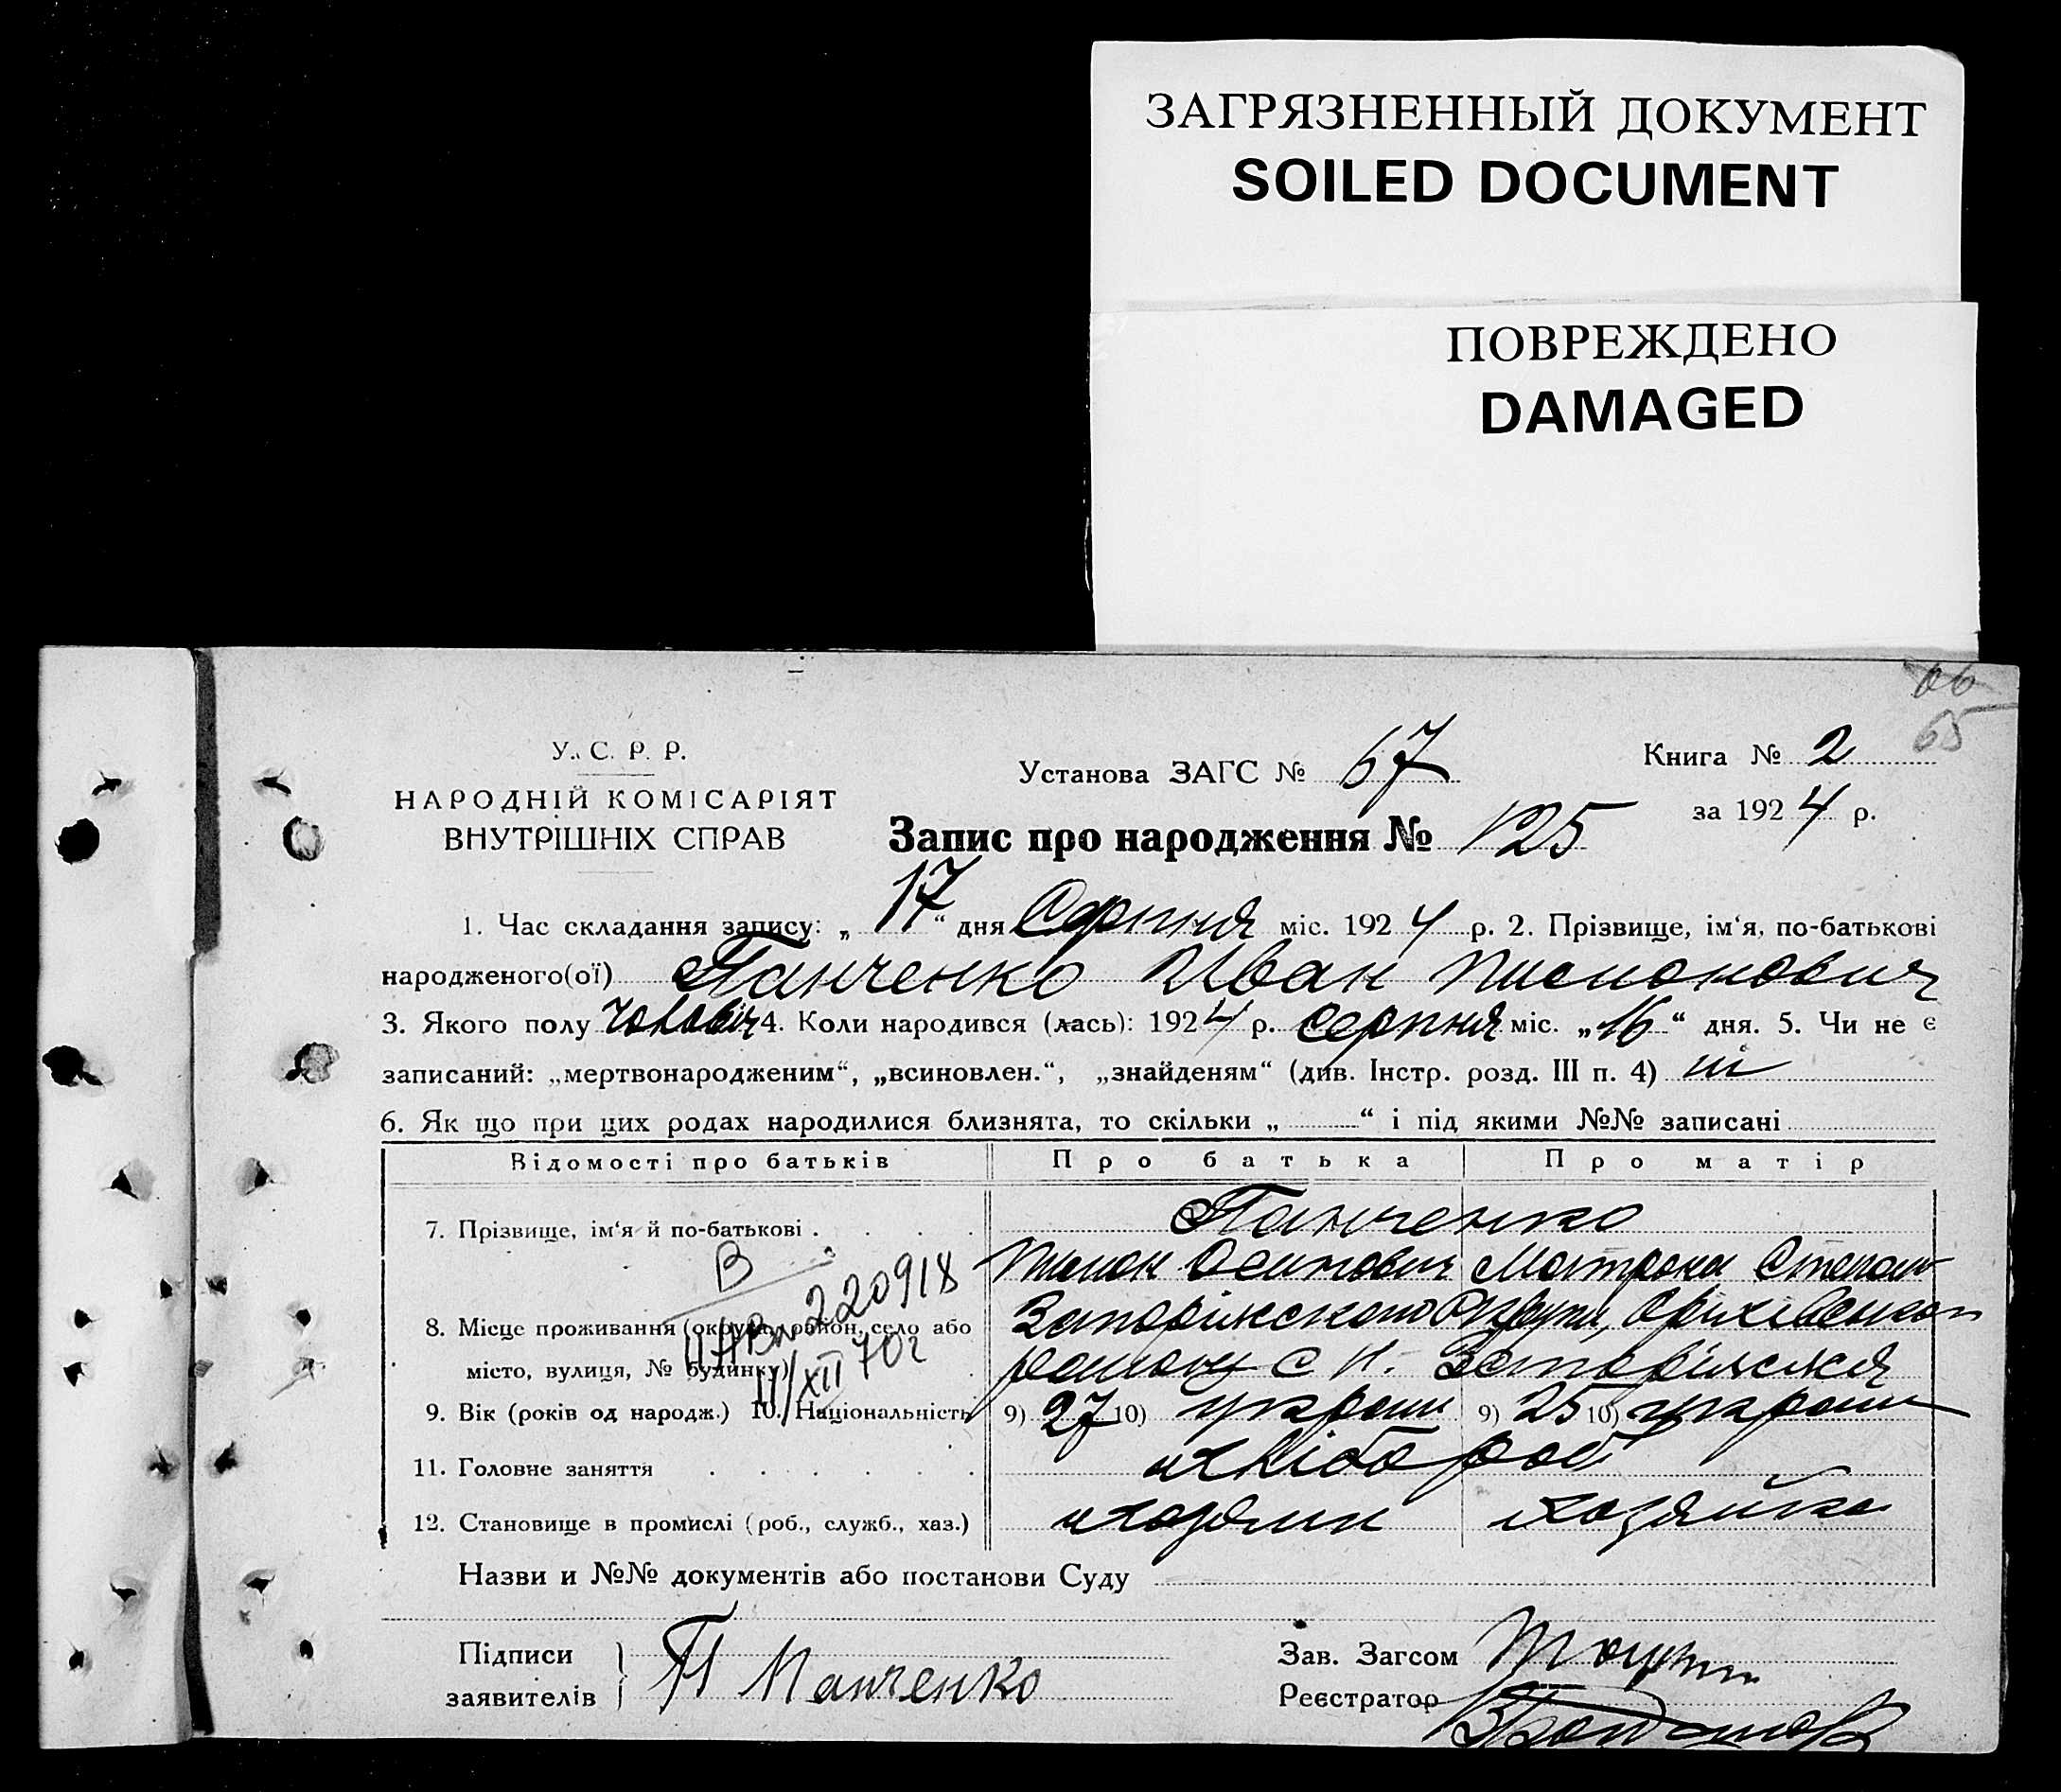 ЗАГРЯЗНЕННЫЙ ДОКУМЕНТ
SOILED DOCUMENT
ПОВРЕЖДЕНО
DAMAGED
66
65
У. С. Р. Р.
НАРОДНІЙ КОМІСАРІЯТ
ВНУТРІШНІХ СПРАВ
Установа ЗАГС № 67
Книга № 2
за 1924 р.
Запис про народження № 125
1. Час складання запису: „17“ дня Серпня міс. 1924 р. 2. Прізвище, ім‘я, по-батькові
народженого(ої) Панченко Иван
3. Якого полу Чоловіч 4. Коли народився (лась): 1924 р. Серпня міс. „16“ дня. 5. Чи не є
записаний: „мертвонародженим“, „всиновлен.“, „знайденям“ (див. Інстр. розд. III п. 4) ні
6. Як що при цих родах народилися близнята, то скільки „ “ і під якими №№ записані
Відомості про батьків Про батька Про матір
7. Прізвище, ім‘я й по-батькові . . . . Панченко
Осипович Мотрона Степан
В
220918
11/XII 70г
8. Місце проживання (округа, район, село або Запоріжского Округи, Оріхівського
місто, вулиця, № будинку) району с Н. Запоріжжя
9. Вік (років од народж.) 10. Національність 9) 27 10) украин 9) 25 10) украин
11. Головне заняття . . . . . . хлібороб
12. Становище в промислі (роб., служб., хаз.) хозяин хозяйка
Назви и №№ документів або постанови Суду
Підписи
заявителів П Панченко
Зав. Загсом
Реєстратор